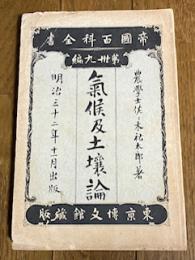 帝國百科全書
第卅九編
農學士佐々木祐太郎著
氣候及土壤論
明治三十二年十月出版
東京博文館蔵版